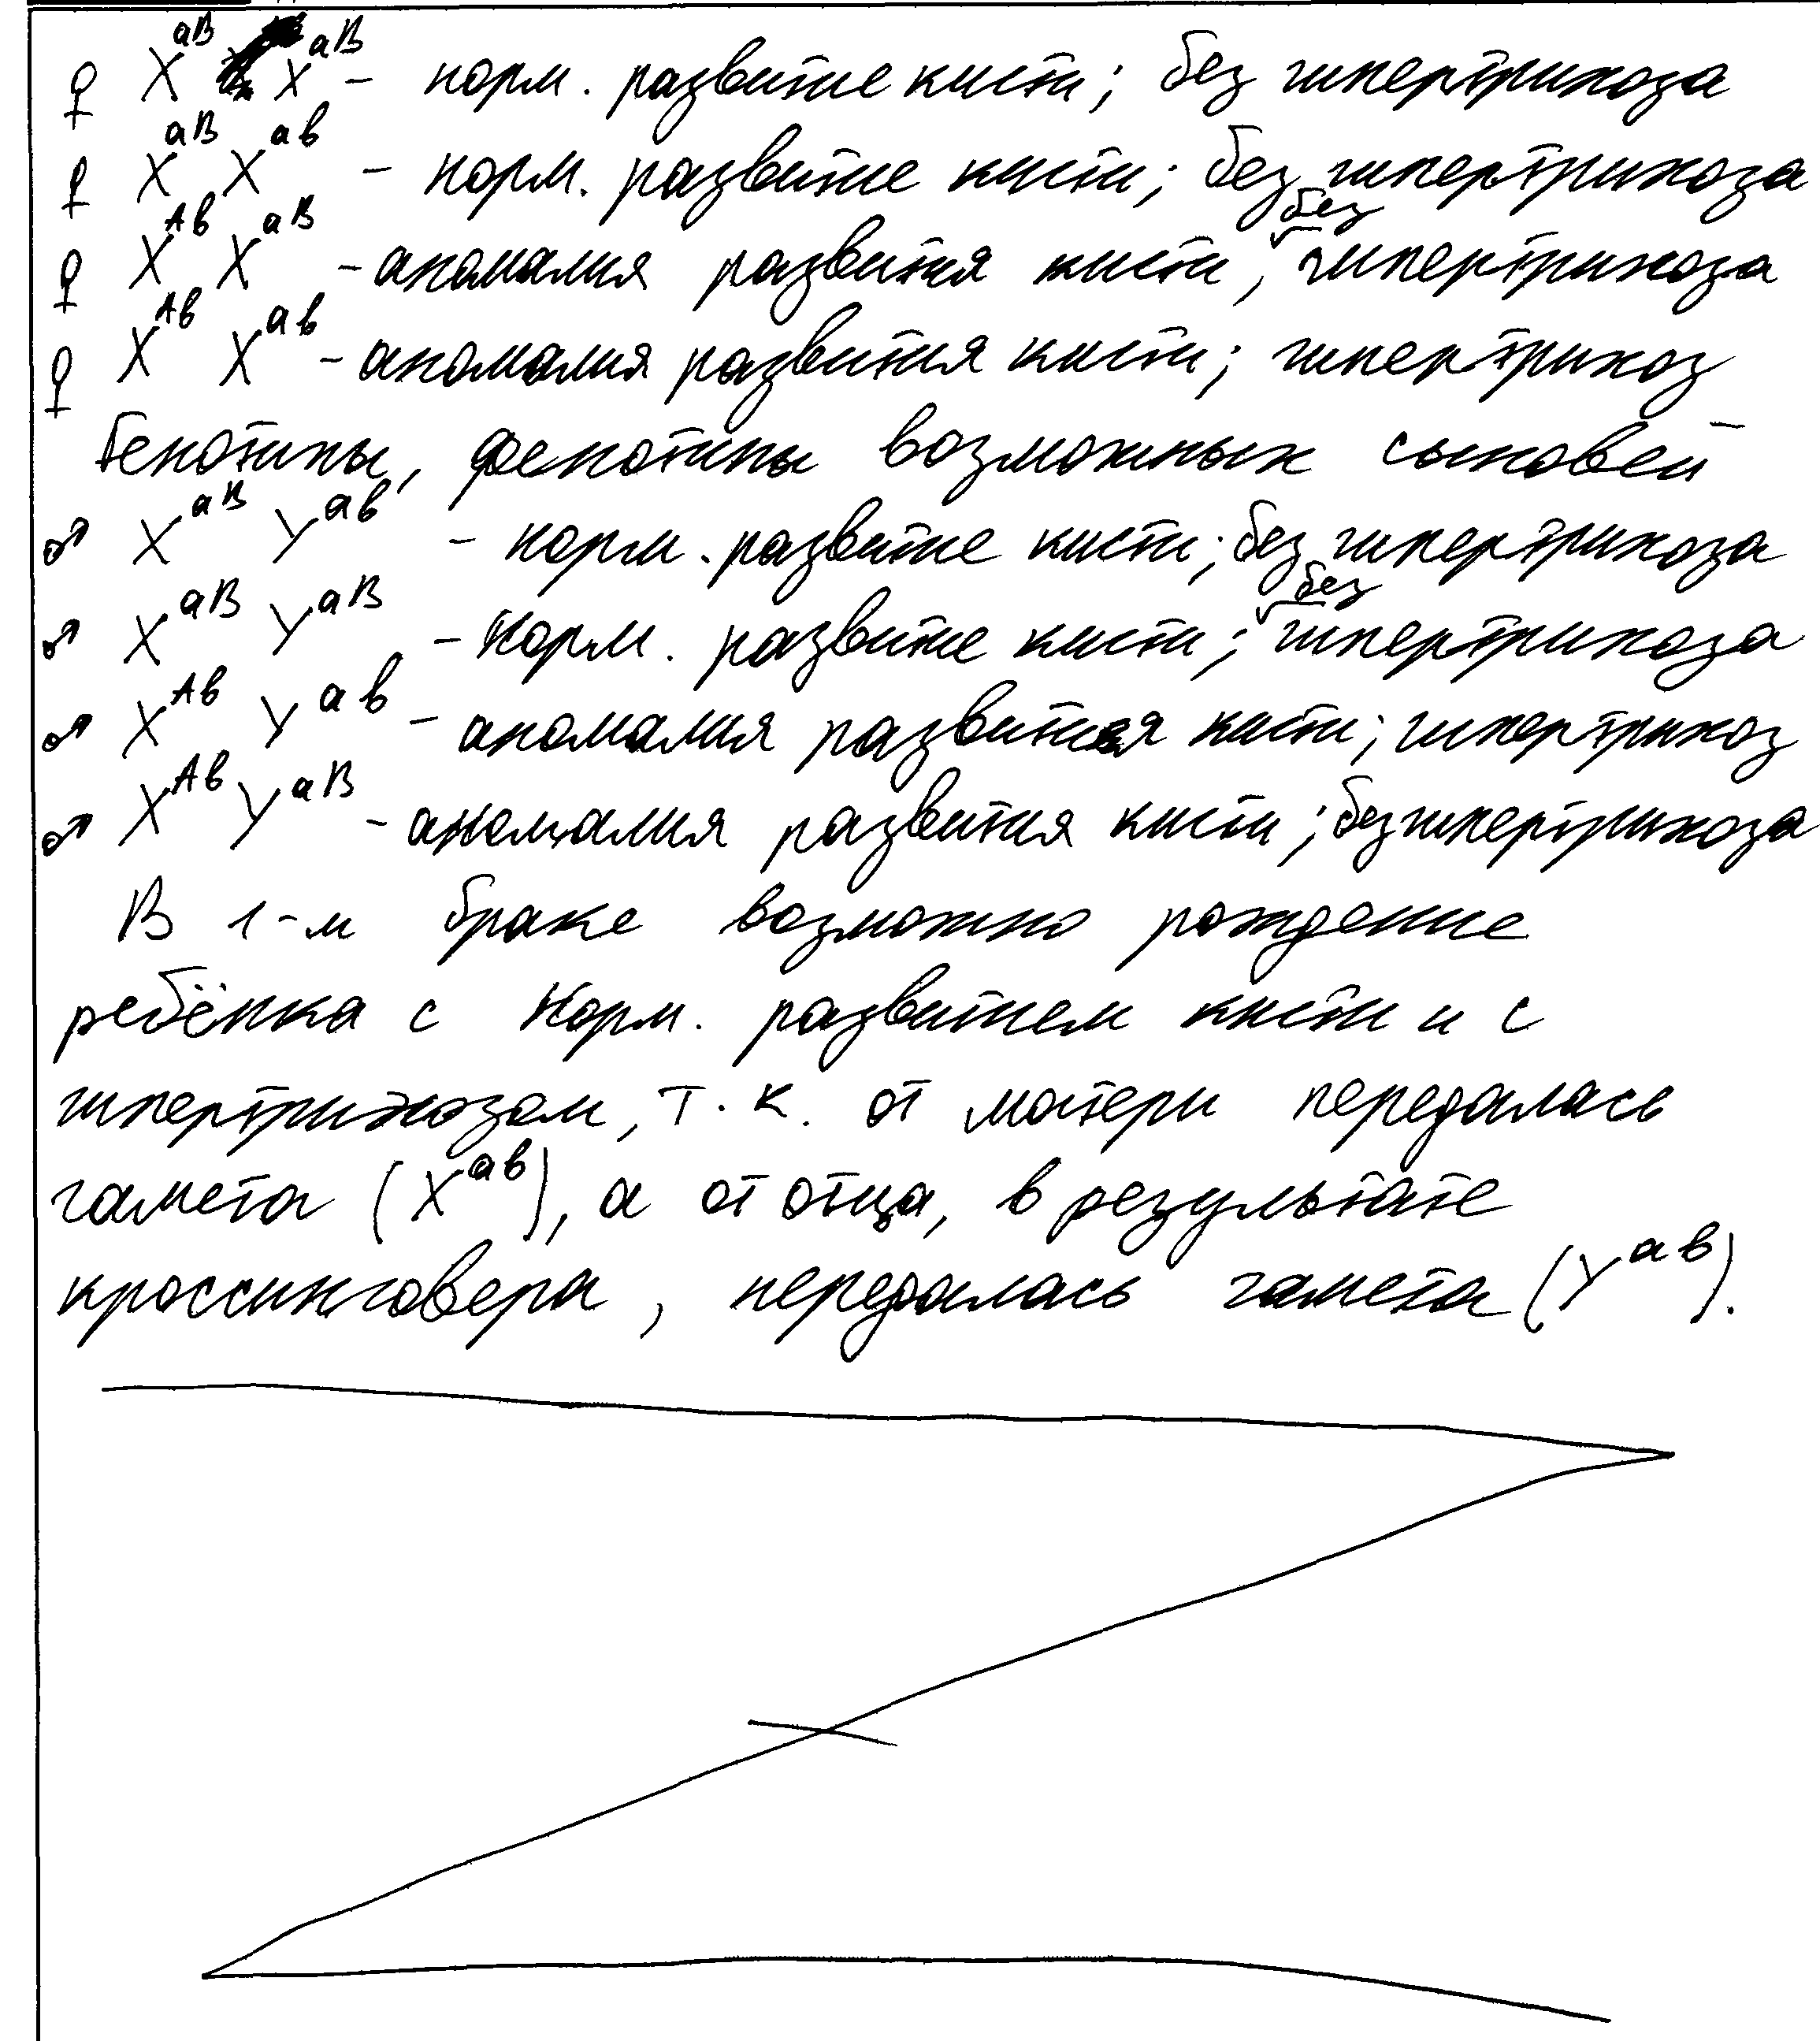 ♀ X^aB X^aB – норм. развитие кисти; без гипертрихоза
♀ X^aB X^ab – норм. развитие кисти; без гипертрихоза
♀ X^Ab X^aB – аномалия развития кисти, без гипертрихоза
♀ X^Ab X^ab – аномалия развития кисти; гипертрихоз
Генотипы, фенотипы возможных сыновей
♂ X^aB Y^ab – норм. развитие кисти; без гипертрихоза
♂ X^aB Y^aB – норм. развитие кисти; без гипертрихоза
♂ X^Ab Y^ab – аномалия развития кисти; гипертрихоз
♂ X^Ab Y^aB – аномалия развития кисти; без гипертрихоза
В 1-м браке возможно рождение
ребёнка с норм. развитием кисти и с
гипертрихозом, т.к. от матери передалась
гамета (X^ab), а от отца, в результате
кроссинговера, передалась гамета (Y^ab).